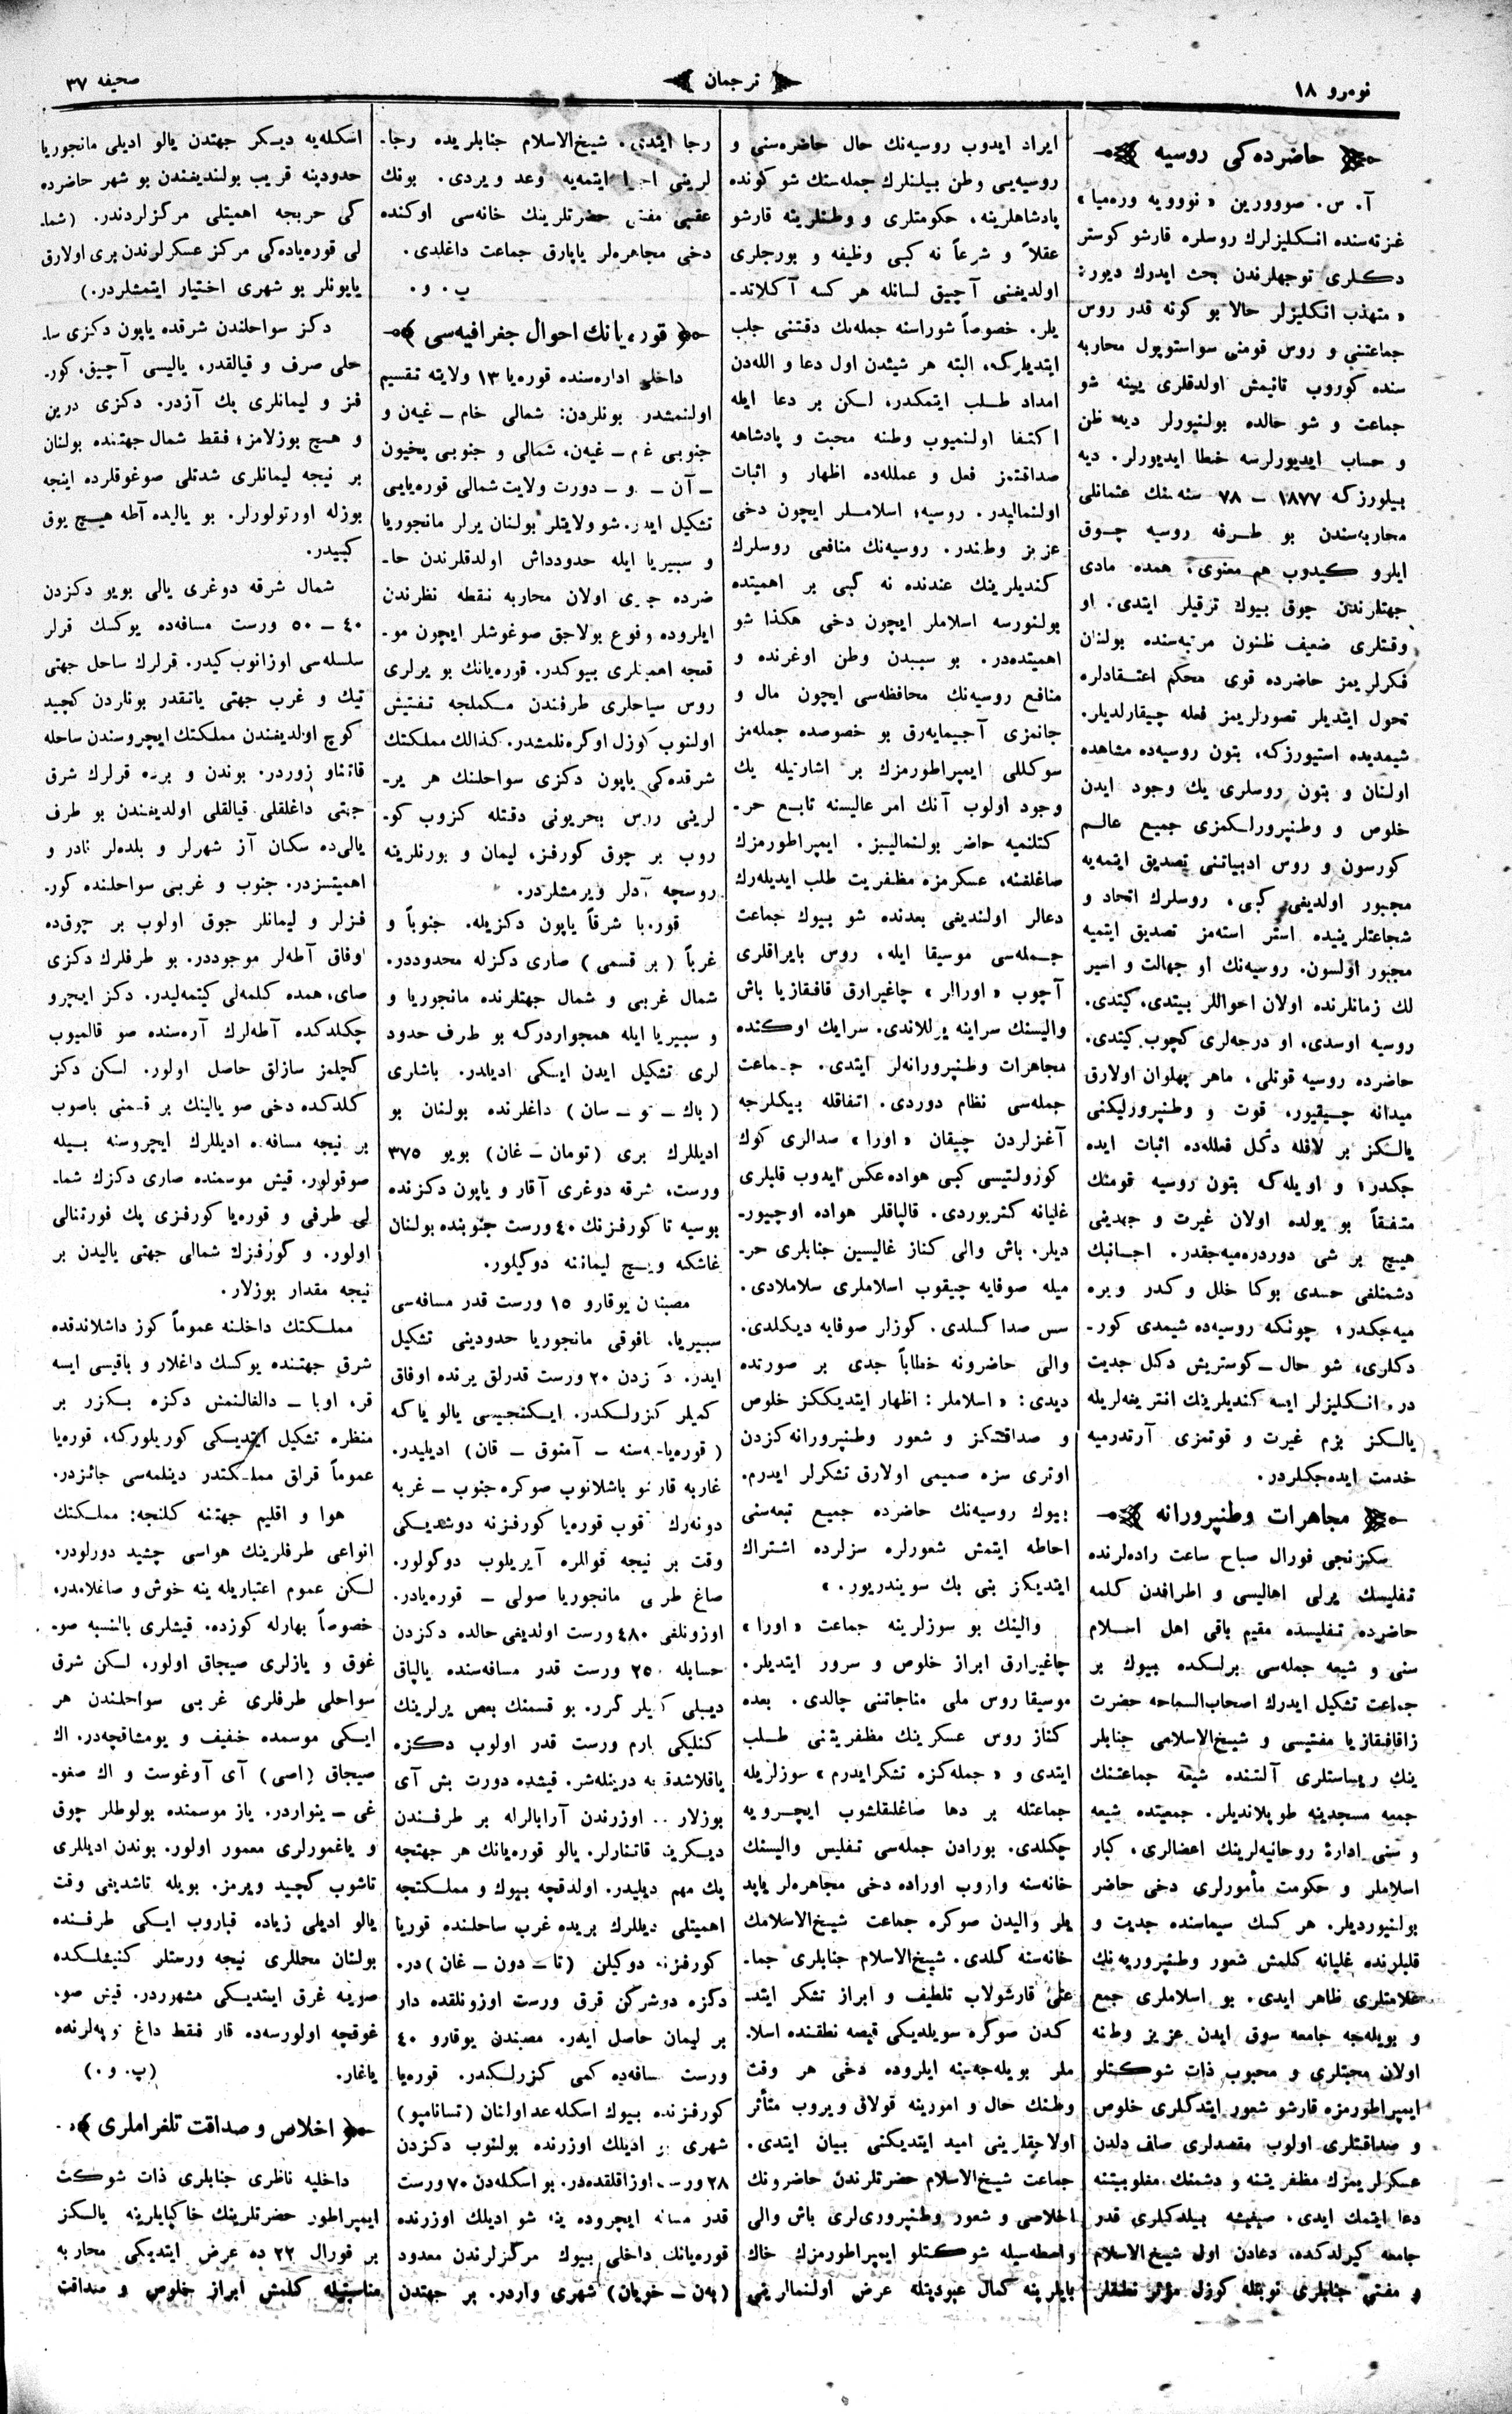 نومرو ١٨
ترجمان
صحيفه ٣٧
حاضرده‌كی روسيه
آ. س. صووورين «نوويه وره‌ميا»
غزته‌سنده انكليزلرك روسلره قارشو كوستر
دكلری توجهلرندن بحث ايدرك ديور:
« متهذب انكليزلر حالا بو كونه قدر روس
جماعتنی و روس قومنی سواستوپول محاربه
سنده كوروب تانيمش اولدقلری يينه شو
جماعت و شو حالده بولنيورلر ديه ظن
و حساب ايديورلرسه خطا ايديورلر. ديه
بيلورزكه ١٨٧٧ – ٧٨ سنه‌سنك عثمانلی
محاربه‌سندن بو طرفه روسيه چوق
ايلرو كيدوب هم معنوی، همده مادی
جهتلرندن چوق بيوك ترقيلر ايتدی. او
وقتلری ضعيف ظنون مرتبه‌سنده بولنان
فكرلريمز حاضرده قوی محكم اعتقادلره
تحول ايتديلر تصورلريمز فعله چيقارلديلر.
شيمديده استيورزكه، بتون روسيه‌ده مشاهده
اولنان و بتون روسلری يك وجود ايدن
خلوص و وطنپرورلكمزی جميع عالم
كورسون و روس ادبياتنی تصديق ايتمه‌يه
مجبور اولديغی كبی، روسلرك اتحاد و
شجاعتلرينيده استر استه‌مز تصديق ايتميه
مجبور اولسون. روسيه‌نك او جهالت و اسير
لك زمانلرنده اولان احواللر بيتدی، كيتدی.
روسيه اوسدی، او درجه‌لری كچوب كيتدی.
حاضرده روسيه قوتلی، ماهر پهلوان اولارق
ميدانه چيقيور، قوت و وطنپرورليكنی
يالكز بر لافله دكل فعلله‌ده اثبات ايده
جكدر؛ و اويله‌كه بتون روسيه قومنك
متفقاً بو يولده اولان غيرت و جهدينی
هيچ بر شی دوردره‌ميه‌جقدر. اجانبك
دشمنلغی حسدی بوكا خلل و كدر ويره
ميه‌جكدر؛ چونكه روسيه‌ده شيمدی كور-
دكلری، شو حال – كوستريش دكل جديت
در، انكليزلر ايسه كنديلرينك انتريغه‌لريله
يالكز بزم غيرت و قوتمزی آرتدرميه
خدمت ايده‌جكلردر.
مجاهرات وطنپرورانه
سكزنجی فورال صباح ساعت راده‌لرنده
تفليسك يرلی اهاليسی و اطرافدن كلمه
حاضرده تفليسده مقيم باقی اهل اسلام
سنی و شيعه جمله‌سی برلكده بيوك بر
جماعت تشكيل ايدرك اصحاب‌السماحه حضرت
زاقافقازيا مفتيسی و شيخ‌الاسلامی جنابلر
ينك رياستلری آلتنده شيعه جماعتنك
جمعه مسجدينه طوپلانديلر. جمعيتده شيعه
و سنی ادارهٔ روحانيه‌لرينك اعضالری، كبار
اسلاملر و حكومت مأمورلری دخی حاضر
بولنيورديلر. هر كسك سيماسنده جديت و
قلبلرنده غليانه كلمش شعور وطنپروريه‌نك
علامتلری ظاهر ايدی. بو اسلاملری جمع
و بويله‌جه جامعه سوق ايدن عزيز وطنه
اولان محبتلری و محبوب ذات شوكتلو
ايمپراطورمزه قارشو شعور ايتدكلری خلوص
و صداقتلری اولوب مقصدلری صاف دلدن
عسكرلريمزك مظفريتنه و دشمنك مغلوبيتنه
دعا ايتمك ايدی. صيغيشه بيلدكلری قدر
جامعه كيرلدكده، دعادن اول شيخ‌الاسلام
و مفتی جنابلری نوبتله كوزل مؤثر نطقلر
ايراد ايدوب روسيه‌نك حال حاضره‌سنی و
روسيه‌يی وطن بيلنلرك جمله‌سنك شو كونده
پادشاهلرينه، حكومتلری و وطنلرينه قارشو
عقلاً و شرعاً نه كبی وظيفه و بورجلری
اولديغنی آچيق لسانله هر كسه آكلاتد-
يلر. خصوصاً شوراسنه جمله‌نك دقتنی جلب
ايتديلركه، البته هر شيئدن اول دعا و الله‌دن
امداد طلب ايتمكدر، لكن بر دعا ايله
اكتفا اولنميوب وطنه محبت و پادشاهه
صداقتمز فعل و عملله‌ده اظهار و اثبات
اولنماليدر. روسيه؛ اسلاملر ايچون دخی
عزيز وطندر. روسيه‌نك منافعی روسلرك
كنديلرينك عندنده نه كبی بر اهميتده
بولنورسه اسلاملر ايچون دخی هكذا شو
اهميتده‌در. بو سببدن وطن اوغرنده و
منافع روسيه‌نك محافظه‌سی ايچون مال و
جانمزی آجيمايه‌رق بو خصوصده جمله‌مز
سوكللی ايمپراطورمزك بر اشارتيله يك
وجود اولوب آنك امر عاليسنه تابع حر-
كتلنميه حاضر بولنماليبز. ايمپراطورمزك
صاغلغنه، عسكرمزه مظفريت طلب ايديله‌رك
دعالر اولنديغی بعدنده شو بيوك جماعت
جمله‌سی موسيقا ايله، روس بايراقلری
آچوب «اورا!ر» چاغيرارق قافقازيا باش
واليسنك سراينه يرللاندی. سرايك اوكنده
مجاهرات وطنپرورانه‌لر ايتدی. جماعت
جمله‌سی نظام دوردی. اتفاقله بيكلرجه
آغزلردن چيقان «اورا» صدالری كوك
كورولتيسی كبی هواده عكس ايدوب قلبلری
غليانه كتربوردی. قالپاقلر هواده اوچيور-
ديلر. باش والی كناز غاليسين جنابلری حر-
ميله صوفايه چيقوب اسلاملری سلاملادی.
سس صدا كسلدی. كوزلر صوفايه ديكلدی.
والی حاضرونه خطاباً جدی بر صورتده
ديدی: « اسلاملر: اظهار ايتديككز خلوص
و صداقتكز و شعور وطنپرورانه‌كزدن
اوتری سزه صميمی اولارق تشكرلر ايدرم.
بيوك روسيه‌نك حاضرده جميع تبعه‌سنی
احاطه ايتمش شعورلره سزلرده اشتراك
ايتديكز بنی بك سويندريور. »
والينك بو سوزلرينه جماعت «اورا»
چاغيرارق ابراز خلوص و سرور ايتديلر.
موسيقا روس ملی مناجاتنی چالدی. بعده
كناز روس عسكرينك مظفريتنی طلب
ايتدی و « جمله‌كزه تشكر ايدرم » سوزلريله
جماعتله بر دها صاغلقلشوب ايچرويه
چكلدی. بورادن جمله‌سی تفليس واليسنك
خانه‌سنه واروب اوراده دخی مجاهره‌لر ياپد
يلر واليدن صوكره جماعت شيخ‌الاسلامك
خانه‌سنه كلدی. شيخ‌الاسلام جنابلری جما-
عتی قارشولاب تلطيف و ابراز تشكر ايتد-
كدن صوكره سويله‌ديكی قيصه نطقنده اسلا-
ملر بويله‌جه‌سينه ايلروده دخی هر وقت
وطنك حال و امورينه قولاق ويروب متأثر
اولاجقلرينی اميد ايتديكنی بيان ايتدی.
جماعت شيخ‌الاسلام حضرتلرندن حاضرونك
اخلاصی و شعور وطنپروری‌لری باش والی
واسطه‌سيله شوكتلو ايمپراطورمزك خاك
پايلرينه كمال عبوديتله عرض اولنماارينی
رجا ايتدی. شيخ‌الاسلام جنابلريده رجا-
لرينی اجرا ايتمه‌يه وعد ويردی. بونك
عقبی مفتی حضرتلرينك خانه‌سی اوكنده
دخی مجاهره‌لر ياپارق جماعت داغلدی.
پ. و.
قوره‌يانك احوال جغرافيه‌سی
داخلی اداره‌سنده قوره‌يا ١٣ ولايته تقسيم
اولنمشدر. بونلردن: شمالی خام – غيه‌ن و
جنوبی غم – غيه‌ن، شمالی و جنوبی پخيون
– آن – و – دورت ولايت شمالی قوره‌يايی
تشكيل ايدر. شو ولايتلر بولنان يرلر مانجوريا
و سبيريا ايله حدودداش اولدقلرندن حا-
ضرده جری اولان محاربه نقطه نظرندن
ايلروده وقوع بولاجق صوغوشلر ايچون مو-
قعجه اهميتلری بيوكدر. قوره‌يانك بو يرلری
روس سياحلری طرفندن مكملجه تفتيش
اولنوب كوزل اوكره‌نلمشدر. كذالك مملكتك
شرقده‌كی ياپون دكزی سواحلنك هر ير-
لرينی روس بحريونی دقتله كزوب كو-
روب بر چوق كورفز، ليمان و بورنلرينه
روسچه آدلر ويرمشلردر.
قوره‌يا شرقاً ياپون دكزيله. جنوباً و
غرباً ( بر قسمی ) صاری دكزله محدوددر.
شمال غربی و شمال جهتلرنده مانجوريا و
و سبيريا ايله همجواردركه بو طرف حدود
لری تشكيل ايدن ايسكی اديلدر. باشلری
( باك – تو – سان ) داغلرنده بولنان بو
اديللرك بری (تومان – غان) بويو ٣٧٥
ورست، شرقه دوغری آقار و ياپون دكزنده
بوسيه تا كورفزنك ٤٠ ورست جنوبنده بولنان
غاشكه ويچ ليماننه دوكيلور.
مصبندن يوقارو ١٥ ورست قدر مسافه‌سی
سبيريا، مافوقی مانجوريا حدودينی تشكيل
ايدر. دكزدن ٢٠ ورست قدرلق يرنده اوفاق
كميلر كزرلكدر. ايكنجيسی يالو ياكه
( قوره‌يا‌جه‌سنه – آمنوق – قان) اديليدر.
غاربه قارشو باشلانوب صوكره جنوب – غربه
دونه‌رك آقوب قوره‌يا كورفزنه دوشديكی
وقت بر نيجه قوللره آيريلوب دوكولور.
صاغ طرفی مانجوريا صولی – قوره‌يادر.
اوزونلغی ٤٨٠ ورست اولديغی حالده دكزدن
حسابله ٢٥٠ ورست قدر مسافه‌سنده يالپاق
ديبلی كميلر كزر. بو قسمنك بعض يرلرينك
كنليكی يارم ورست قدر اولوب دكزه
ياقلاشدقجه درينله‌شر. قيشده دورت بش آی
بوزلار.. اوزرندن آرابالرله بر طرفندن
ديكرينه قاتنارلر. يالو قوره‌يانك هر جهتجه
پك مهم ديليدر. اولدقچه بيوك و مملكتجه
اهميتلی ديللرك بريده غرب ساحلنده قوريا
كورفزنه دوكيلن (تا – دون – غان) در.
دكزه دوشركن قرق ورست اوزونلقده دار
بر ليمان حاصل ايدر. مصبندن يوقارو ٤٠
ورست مسافه‌ده كمی كزرلكدر. قوره‌يا
كورفزنده بيوك اسكله عد اولنان (تسانامپو)
شهری بو اديلك اوزرنده بولنوب دكزدن
٢٨ ورست اوزاقلقده‌در. بو اسكله‌دن ٧٠ ورست
قدر مسافه ايچروده ينه شو اديلك اوزرنده
قوره‌يانك داخلی بيوك مركزلرندن معدود
(پەن – خويان) شهری واردر. بر جهتدن
اسكله‌يه ديكر جهتدن يالو اديلی مانجوريا
حدودينه قريب بولنديغندن بو شهر حاضرده
كی حربجه اهميتلی مركزلردندر. (شما-
لی قوره‌ياده‌كی مركز عسكرلرندن بری اولارق
ياپونلر بو شهری اختيار ايتمشلردر.)
دكز سواحلندن شرقده ياپون دكزی سا-
حلی صرف و قيالقدر. ياليسی آچيق، كور-
فز و ليمانلری بك آزدر. دكزی درين
و هيچ بوزلامز؛ فقط شمال جهتنده بولنان
بر نيجه ليمانلری شدتلی صوغوقلرده اينجه
بوزله اورتولورلر. بو ياليده آطه هيچ يوق
كبيدر.
شمال شرقه دوغری يالی بويو دكزدن
٤٠ – ٥٠ ورست مسافه‌ده يوكسك قرلر
سلسله‌سی اوزانوب كيدر. قرلرك ساحل جهتی
تيك و غرب جهتی ياتقدر بونلردن كچيد
كوچ اولديغندن مملكتك ايچروسندن ساحله
قاتناو زوردر. بوندن و برده قرلرك شرق
جهتی داغلقلی قيالقلی اولديغندن بو طرف
يالی‌ده سكان آز شهرلر و بلده‌لر نادر و
اهميتسزدر. جنوب و غربی سواحلنده كور-
فزلر و ليمانلر چوق اولوب بر چوق‌ده
اوفاق آطه‌لر موجوددر. بو طرفلرك دكزی
صای، همده كلمه‌لی كيتمه‌ليدر. دكز ايچرو
چكلدكده آطه‌لرك آره‌سنده صو قالميوب
كچلمز سازلق حاصل اولور. لكن دكز
كلدكده دخی صو يالينك بر قسمنی باصوب
بر نيجه مسافه‌ده اديللرك ايچروسنه بيله
صوقولور. قيش موسمنده صاری دكزك شما-
لی طرفی و قوره‌يا كورفزی پك فورتنالی
اولور. و كورفزك شمالی جهتی ياليدن بر
نيجه مقدار بوزلار.
مملكتك داخلنه عموماً كوز داشلاندقده
شرق جهتنده يوكسك داغلار و باقيسی ايسه
قر، اوبا – دالغالنمش دكزه بكزر بر
منظره تشكيل ايتديكی كوريلوركه، قوره‌يا
عموماً قراق مملكتدر دينلمه‌سی جائزدر.
هوا و اقليم جهتنه كلنجه: مملكتك
انواعی طرفلرينك هواسی چشيد دورلودر.
لكن عموم اعتباريله ينه خوش و صاغلامدر،
خصوصاً بهارله كوزده. قيشلری بالنسبه صو-
غوق و يازلری صيجاق اولور، لكن شرق
سواحلی طرفلری غربی سواحلندن هر
ايكی موسمده خفيف و يومشاقچه‌در. اك
صيجاق (اصی) آی آوغوست و اك صغو-
غی – ينواردر. ياز موسمنده بولوطلر چوق
و ياغمورلری معمور اولور. بوندن اديللری
تاشوب كچيد ويرمز. بويله تاشديغی وقت
يالو اديلی زياده قباروب ايكی طرفنده
بولنان محللری نيجه ورستلر كنيشلكده
صوينه غرق ايتديكی مشهوردر. قيش صو-
غوقچه اولورسه‌ده قار فقط داغ توپه‌لرنده
ياغار. (پ. و.)
اخلاص و صداقت تلغراملری
داخليه ناظری جنابلری ذات شوكت
ايمپراطور حضرتلرينك خاكپايلرينه يالكز
بر فورال ٢٢ ده عرض ايتديكی محاربه
مناسبتيله كلمش ابراز خلوص و صداقت